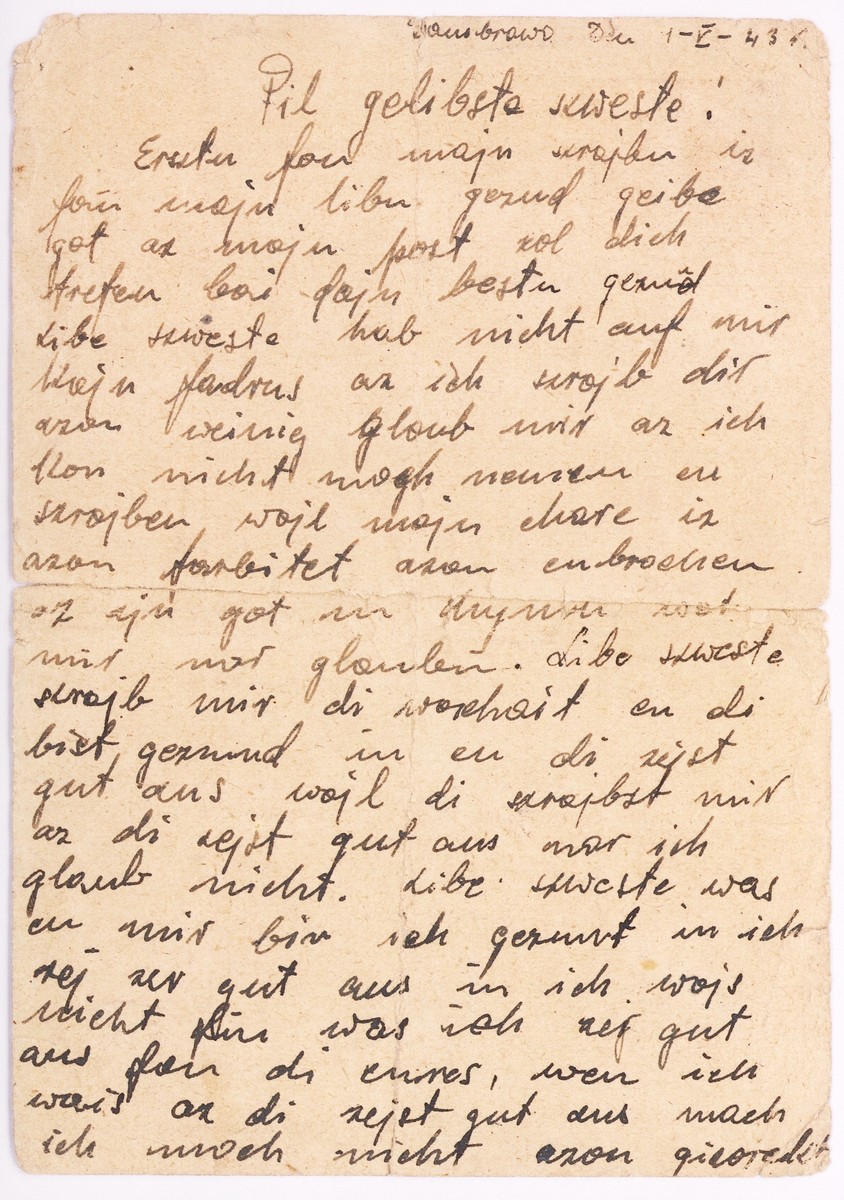 Den 1-V-43 r.
Fil gelibste szweste!
Ersztn fon majn szrajbn iz
fon majn libn gezund geibe
got az majn post zol dich
trefen bai dajn bestn gezud
Libe szweste hab nicht auf mir
kajn fadrus az ich szrajb dir
azon weinig Glaub mir az ich
kon nicht mogh nemen en
szrajben wajl majn chare iz
azon farbitet azon enbrochen
az ajn got in
mir nor glauben. Libe szweste
szrajb mir di worchait en di
bist gezunnd in en di zejst
gut aus wajl di szrajbst mir
az di zejst gut aus nor ich
glaub nicht. Libe szweste was
en mir bin ich gezunt in ich
zej zer gut aus in ich wajs
nicht fin was ich zej gut
aus fon di cures, wen ich
wais az di zejst gut aus mach
ich moch nicht azon